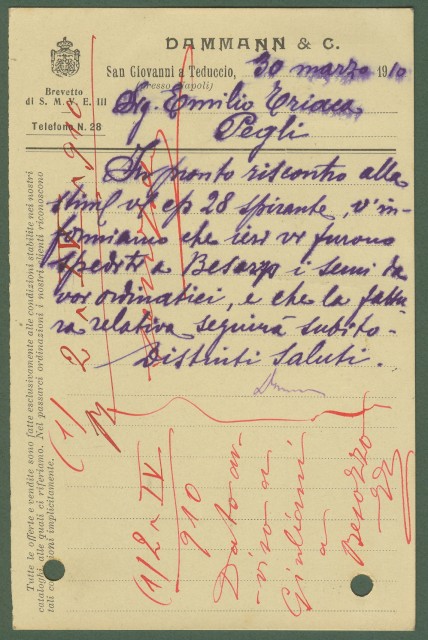 DAMMANN & C.
Brevetto
di S. M. V. E. III
Telefono N. 28
San Giovanni a Teduccio, 30 marzo 1910
(presso Napoli)
Sig. Emilio
Pegli
In pronto riscontro alla
stim/ vs/ cp 28 spirante, v'in-
formiamo che ieri vi furono
spediti a Besozzo i semi da
voi ordinatici, e che la fattu
ra relativa seguirà subito-
Distinti saluti.
Damm
Tutte le offerte e vendite sono fatte esclusivamente alle condizioni stabilite nei nostri
cataloghi, alle quali ci riferiamo. Nel passarci ordinazioni i nostri clienti riconoscono
tali condizioni implicitamente.
(1/ 2 - IV 910
(1/2 - IV
910
Dato av-
viso a
Giuliani
a
Besozzo